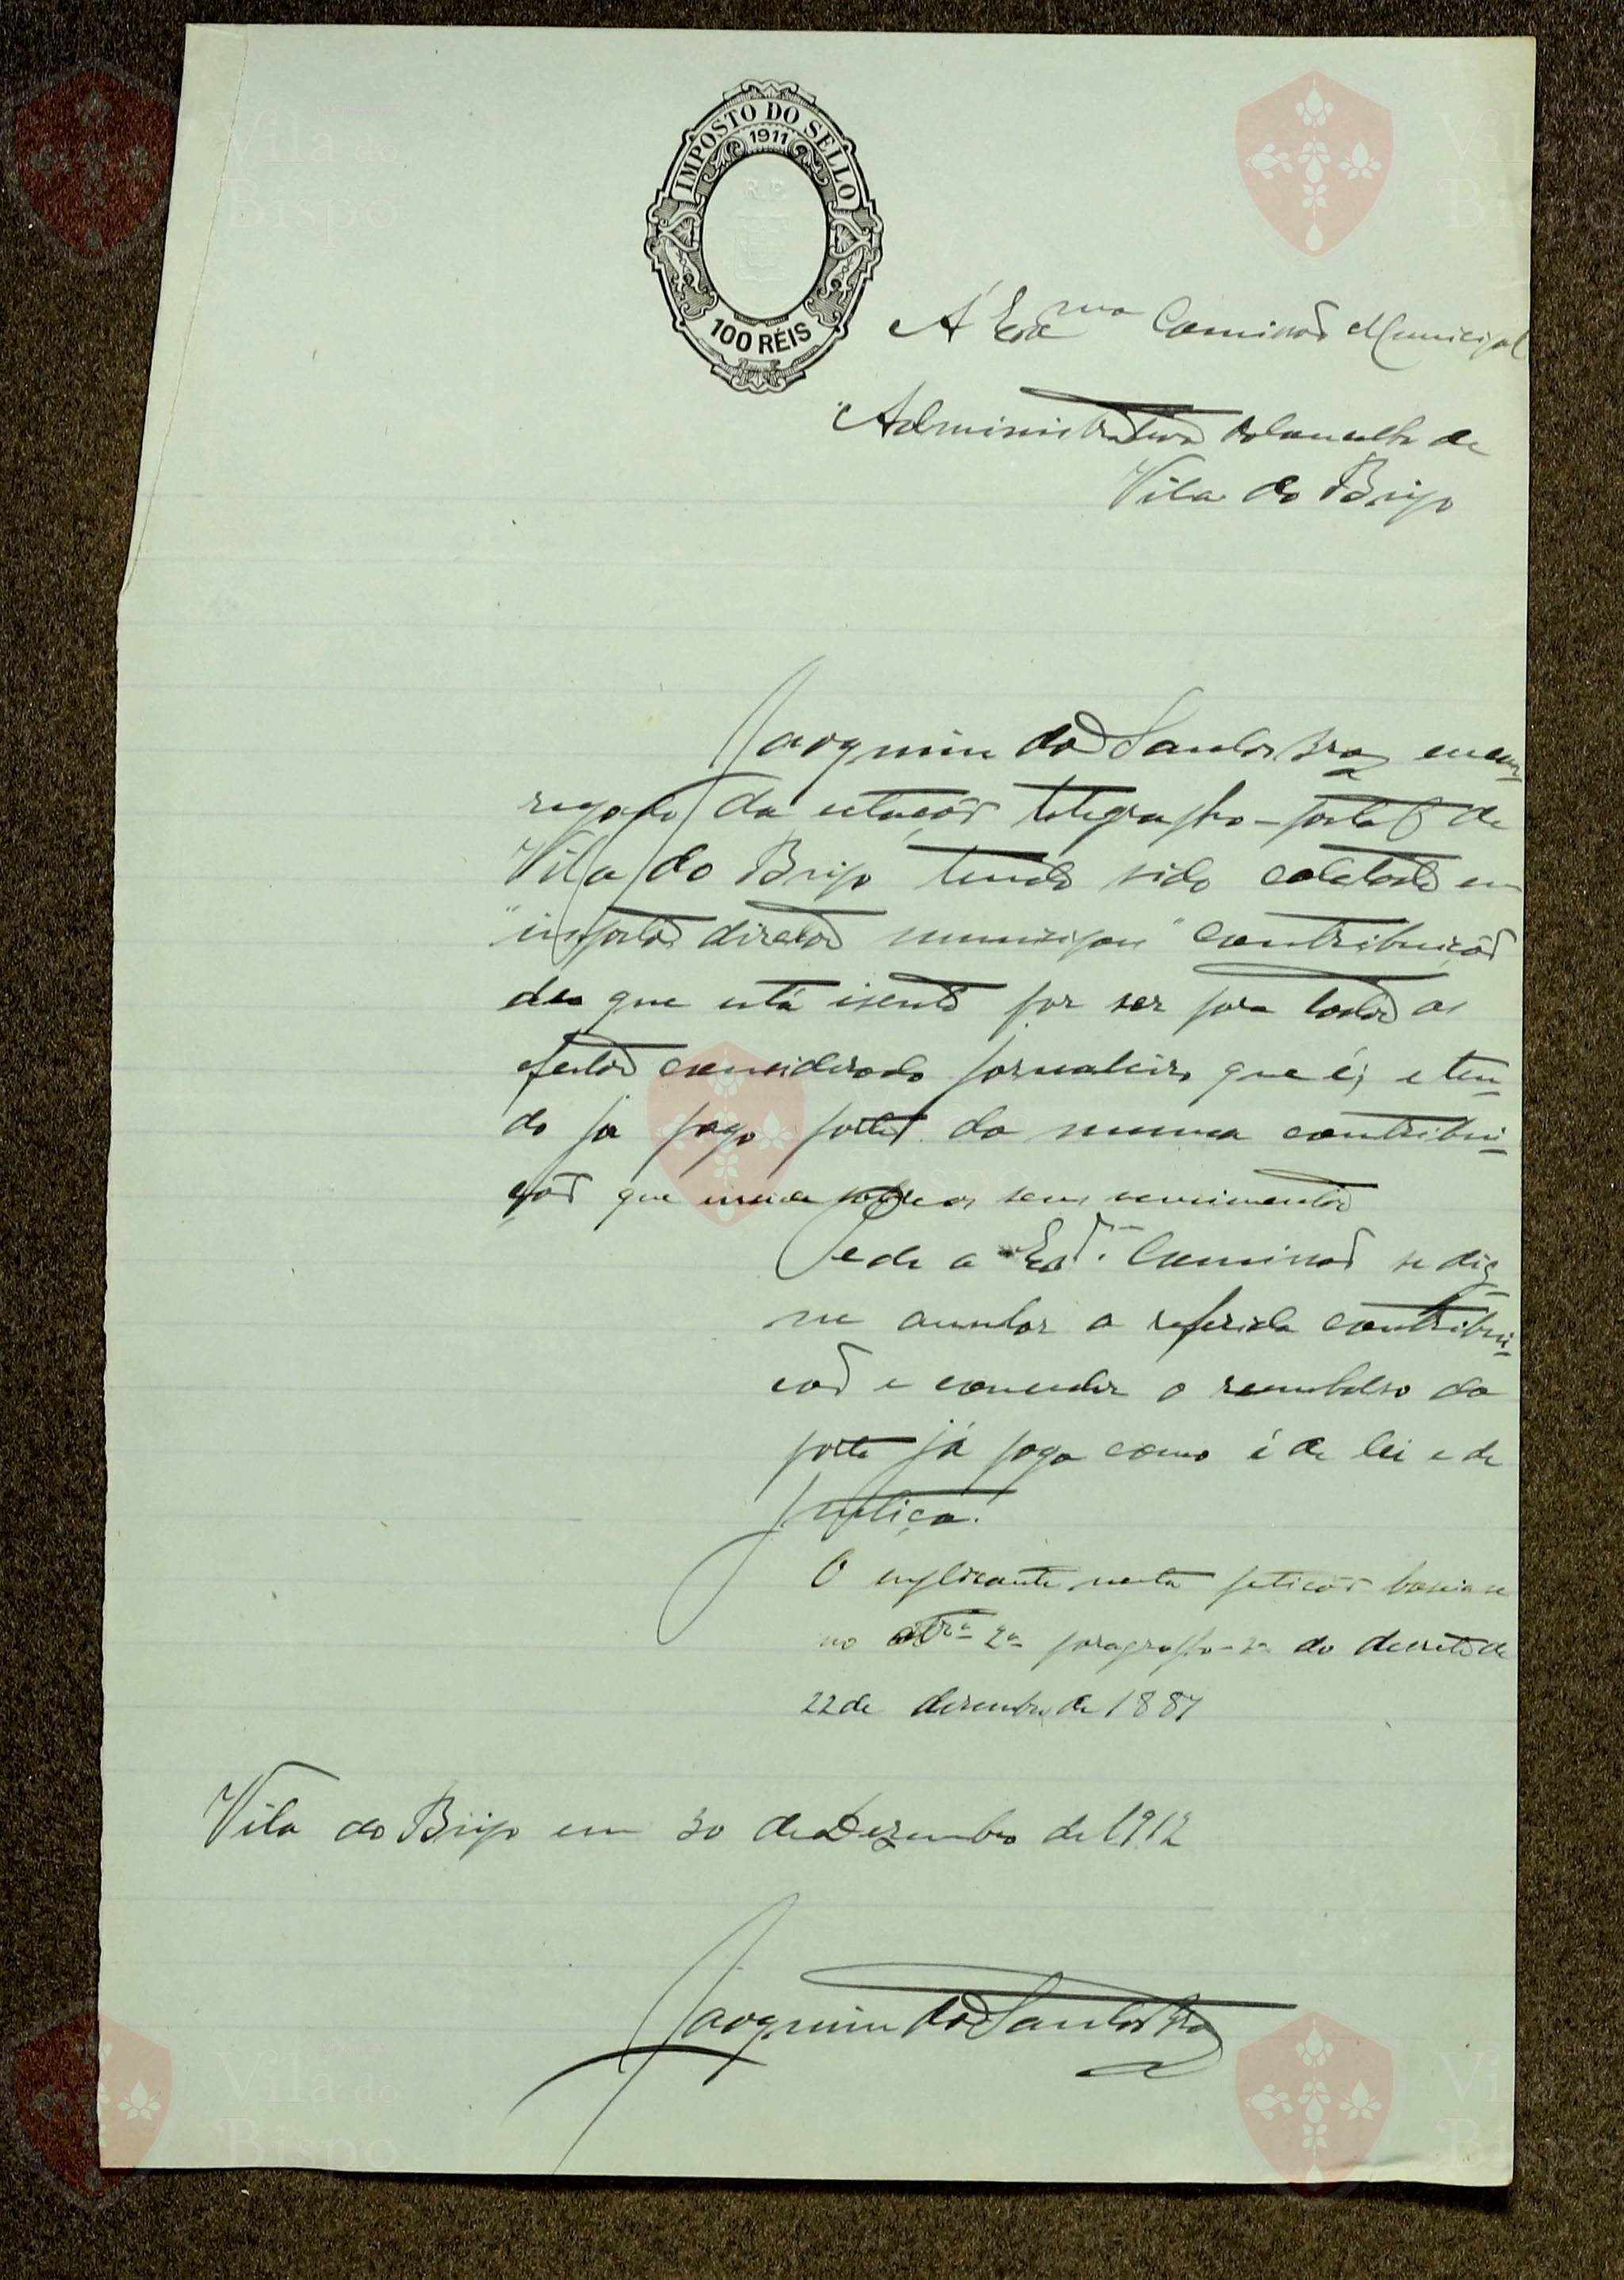 IMPOSTO DO SELLO
1911
R.P.
100 RÉIS
Á Exma Comissão Municipal
Administrativa do Concelho de
Vila do Bispo
Joaquim dos Santos Braz encar
regado da estação telegrafho-postal de
Vila do Bispo tendo sido coletado em
"impostos diretos municipais" contribuição
de que está isento por ser para todos os
efeitos considerado jornaleiro que é; e ten-
do já pago parte da mesma contribui-
ção que incide sobre os seus vencimentos
Pede a Exma. Comissão se dig-
ne anular a referida contribui-
cão e conceder o reembolso da
parte já paga como é de lei e de
justiça.
O suplicante nesta petição baseia-se
no 2º paragrafho do decreto de
22 de dezembro de 1887
Vila do Bispo em 30 de Dezembro de 1912
Joaquim dos Santos Braz
Vila do
Bispo